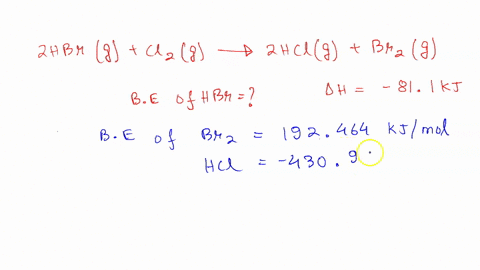 2HBr(g) + Cl₂(g) ⟶ 2HCl(g) + Br₂(g)
B.E of HBr = ? ΔH = -81.1 KJ
B.E of Br₂ = 192.464 KJ/mol
HCl = -430.9